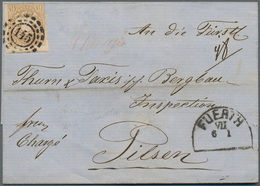 145
An die Fürstl
Thurn & Taxis'sche Bergbau
Inspection
Pilsen
frey
Chargé
FUERTH
VII
6 1